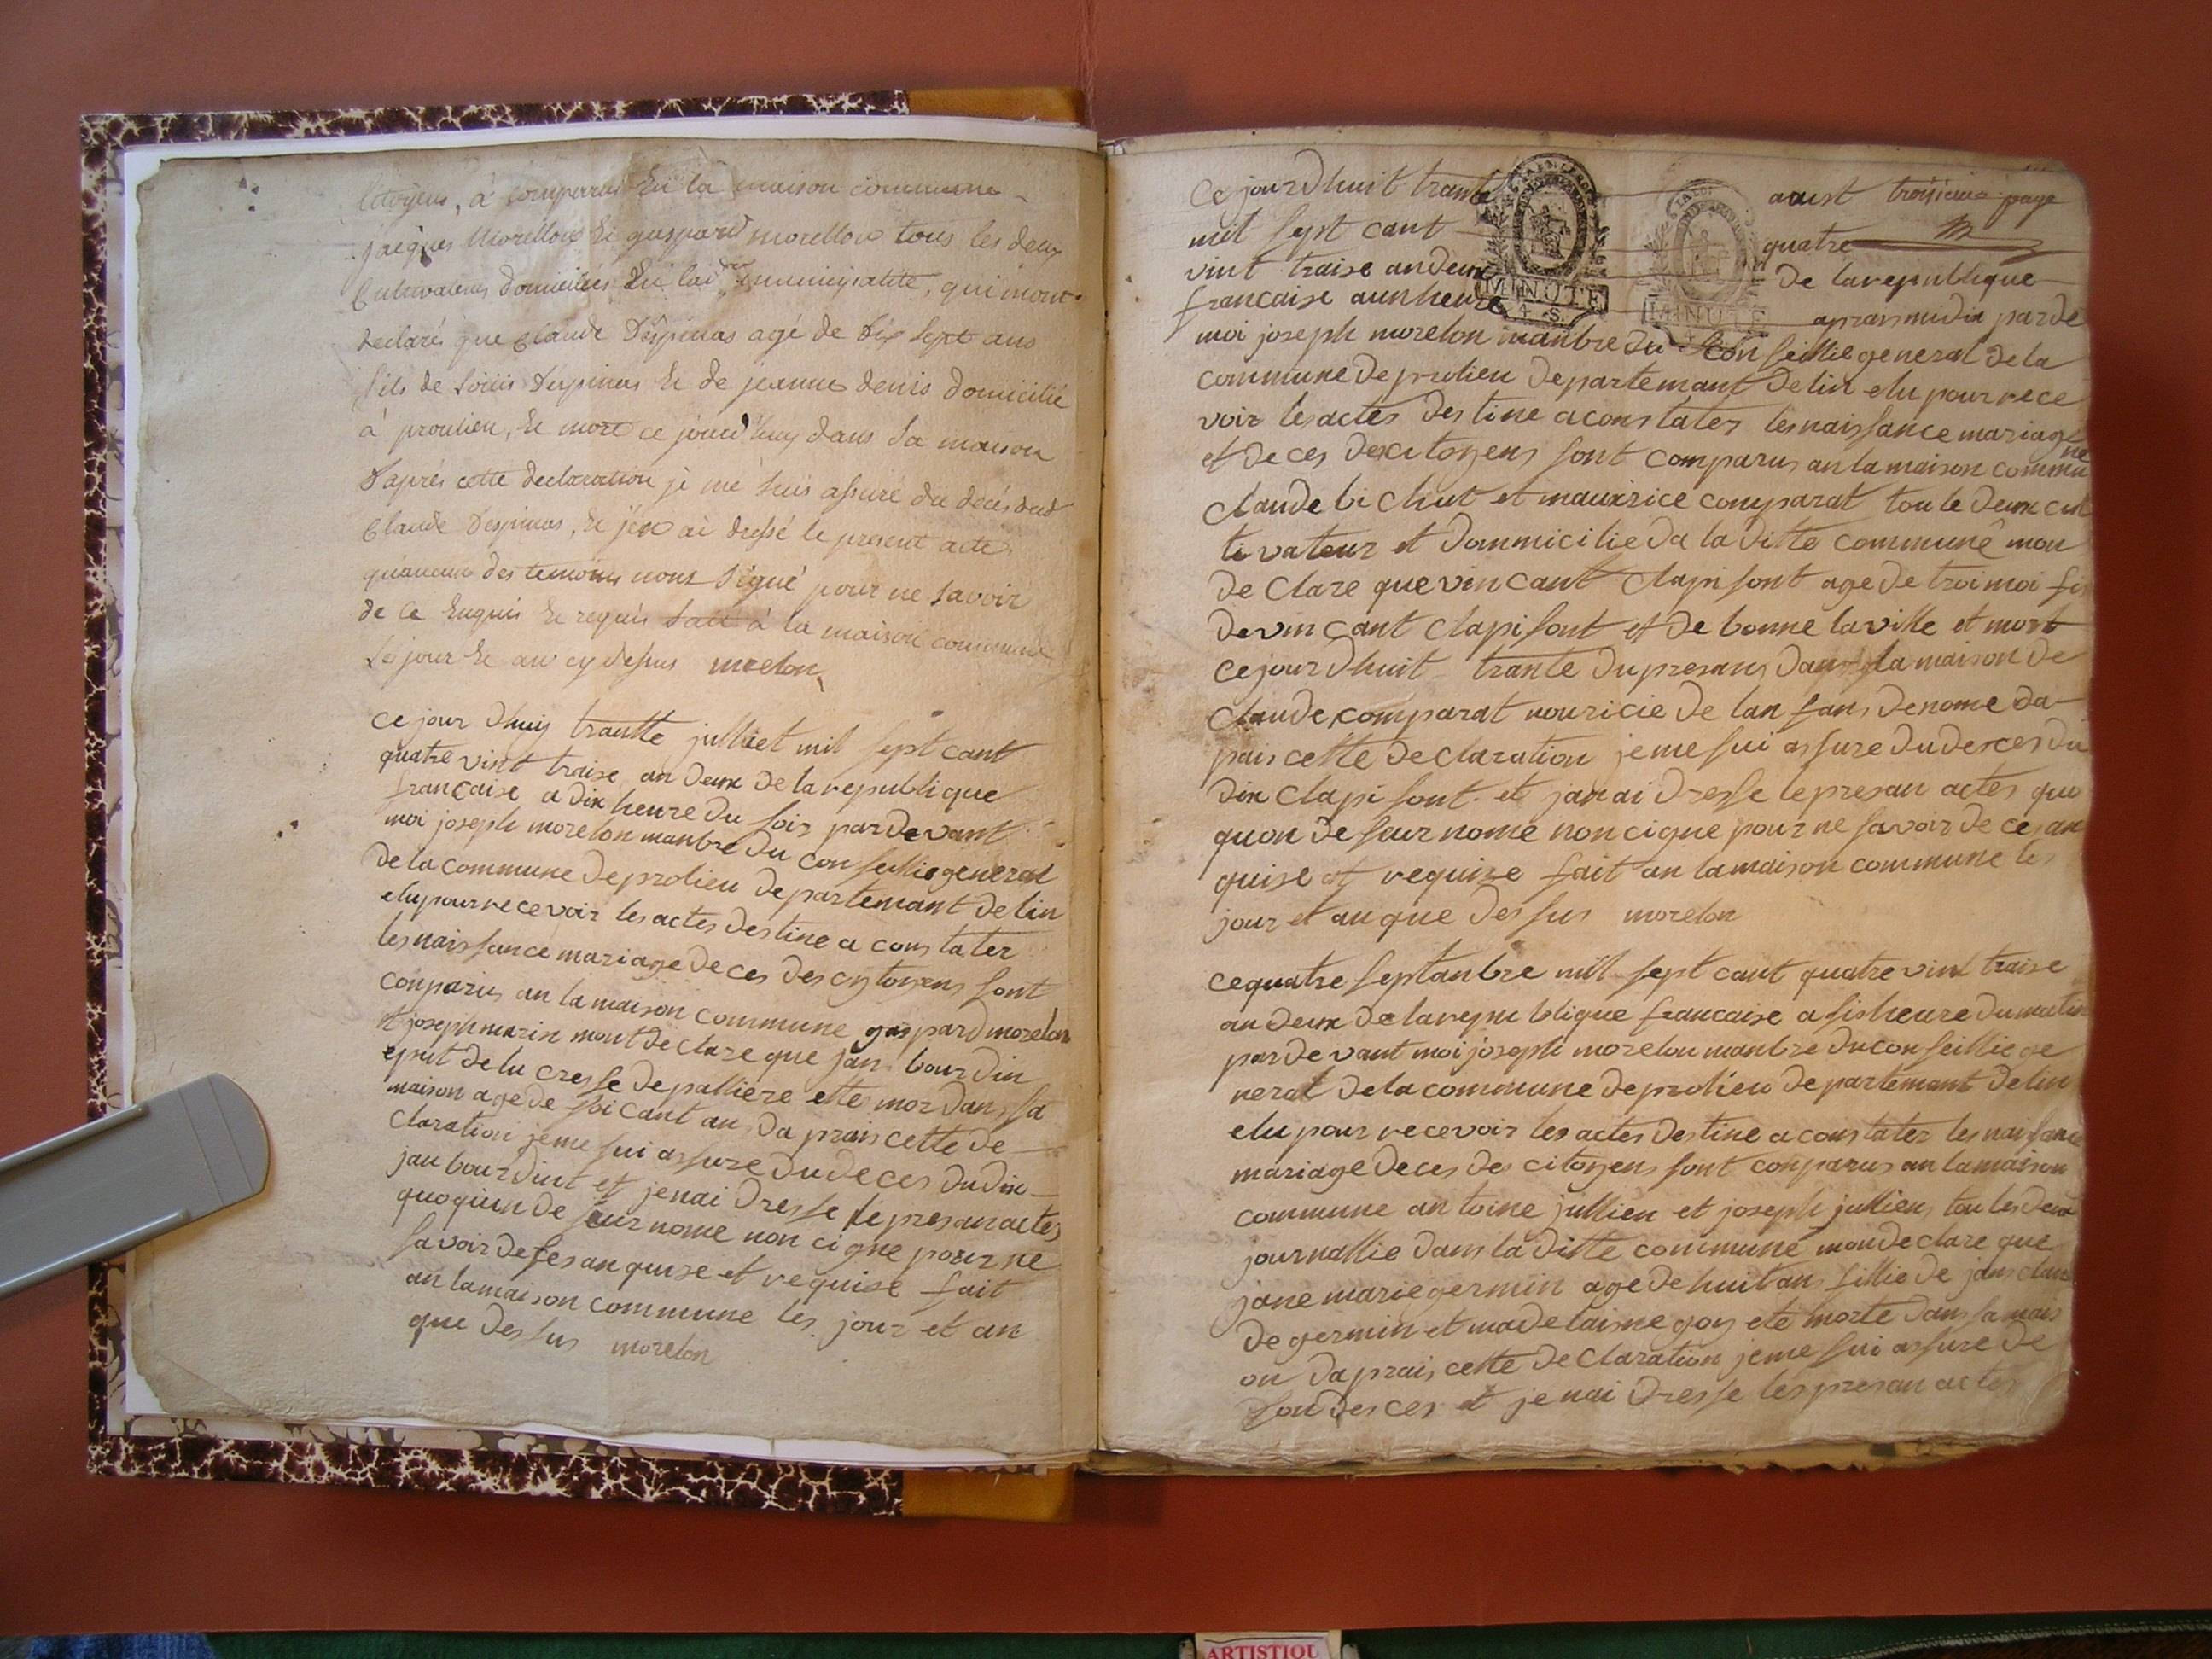 Citoyens, à comparu En la maison commune
jacques Morellon Et gaspard morellon tous les deux
Cultivateurs domiciliés En lad municipalité, qui mont
declaré que Claude Despinas agé de dix sept ans
fils de Loüis Despinas Et de jeanne denis domicilié
à proulieu, Et mort ce jourd'huy dans sa maison
D'aprés cette declaration je me suis assuré du decés dud
Claude Despinas, Et j'en ai dressé le present acte
qu'aucun des temoins nont signé pour ne savoir
de ce Enquis Et requis fait à la maison commune
Le jour Et an cy dessus morelon
ce jour dhuy trantte julliet mil sept cant
quatre vint traise an deux de la republique
francaise a dix heure du soir par devant
moi joseph morelon manbre du conseillie general
de la commune de prolieu departemant de lin
elu pour recevoir les actes destine a constater
les naissance mariage deces des cytoyens sont
conparus an la maison commune gaspard morelon
et joseph marin mont declare que jan bourdin
eput de lu cresse de palliere ette mor dans sa
maison age de soicant ans da prais cette de
claration je me sui assure du deces du dix
jan bourdint et jenai dresse le presan actes
quoquun de seur nome non cigne pour ne
savoir de ses anquise et requise fait
an la maison commune les jour et an
que dessus morelon
ce jour dhuit trante aoust troisieme page
mil sept cant quatre
vint traise an deux de la republique
francaise aunheure apransmidis par de
moi joseph morelon manbre du conseillie general de la
commune de prolieu departemant de lin elu pour rece
voir les actes destine a constater les naissance mariage
et deces des citoyens sont comparus an la maison commu
ne
claude bichut et mauxrice comparat tou le deux cul
tivateur et dommicilie da la ditte commune mon
de clare que vincant clapisont age de troi moi fis
de vincant clapisont et de bonne laville et mort
ce jour dhuit trante du presans dans la maison de
claude comparat nouricie de lanfans denome da
pais cette declaration je me sui assure du desces du
dix clapisont et janai dresse le presan actes quo
quon de seur nome non cigne pour ne savoir de ces an
quise et requize fait an la maison commune les
jour et an que dessus morelon
ce quatre septanbre mil sept cant quatre vint traise
an deux de la republique francaise a sisheure du matin
par devant moi joseph morelon manbre du conseillie ge
neral de la commune de prolieu departemant de lin
elu pour recevoir les actes destine a constater les naissance
mariage deces des citoyens sont conparus an la maison
commune antoine jullien et joseph jullien tou les deux
journallie dans la ditte commune mon declare que
jane marie germin age de huit ans fillie de jans clau
de germin et madelaine goy ete morte dans sa mais
on daprais cette declaration je me sui assure de
son desces et je nai dresse les presan actes
MINUTE
4 S.
MINUTE
ARTISTIQU